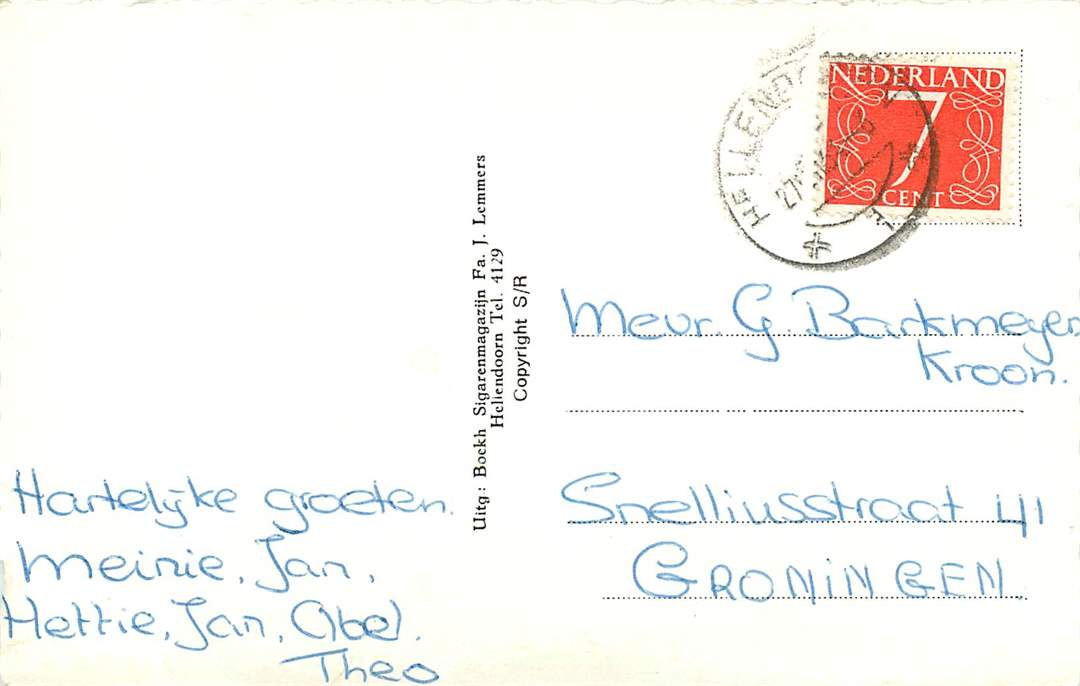 NEDERLAND
7
CENT
HELLEND
27
Uitg.: Boekh Sigarenmagazijn Fa. J. Lemmers
Hellendoorn Tel. 4129
Copyright S/R
Mevr. G. Barkmeyer
Kroon.
Snelliusstraat 41
GRONINGEN.
Hartelijke groeten.
Meinie, Jan,
Hettie, Jan, Abel.
Theo